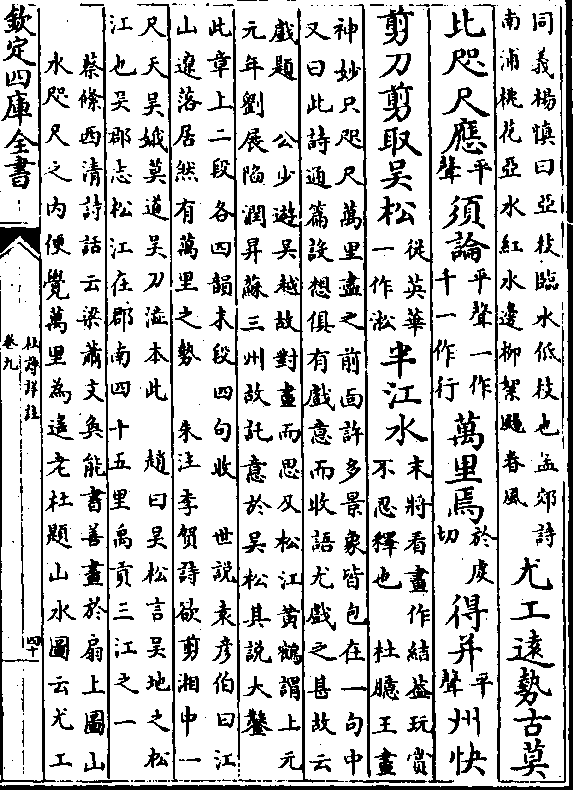 同義楊慎曰亞枝臨水低枝也孟郊詩
南浦桃花亞水紅水邊柳絮颺春風
尤工遠勢古莫
比咫尺應平聲須論平聲一作千一作行萬里焉於虔切得并平聲州快
剪刀剪取吳松從英華一作淞半江水末將看畫作結蓋玩賞不忍釋也 杜臆王畫
神妙只咫尺萬里盡之前面許多景象皆包在一句中
又曰此詩通篇設想俱有戲意而收語尤戲之甚故云
戲題 公少遊吳越故對畫而思及松江黃鶴謂上元
元年劉展陷潤昇蘇三州故託意於吳松其說大鑿
此章上二段各四韻末段四句收 世說袁彥伯曰江
山遼落居然有萬里之勢 朱注李賀詩欲剪湘中一
尺天吳娥莫道吳刀澁本此 趙曰吳松言吳地之松
江也吳郡志松江在郡南四十五里禹貢三江之一
蔡絛西清詩話云梁蕭文奐能書善畫於扇上圖山
水咫尺之內便覺萬里為遙老杜題山水圖云尤工
欽定四庫全書
杜詩詳註
卷九
四十